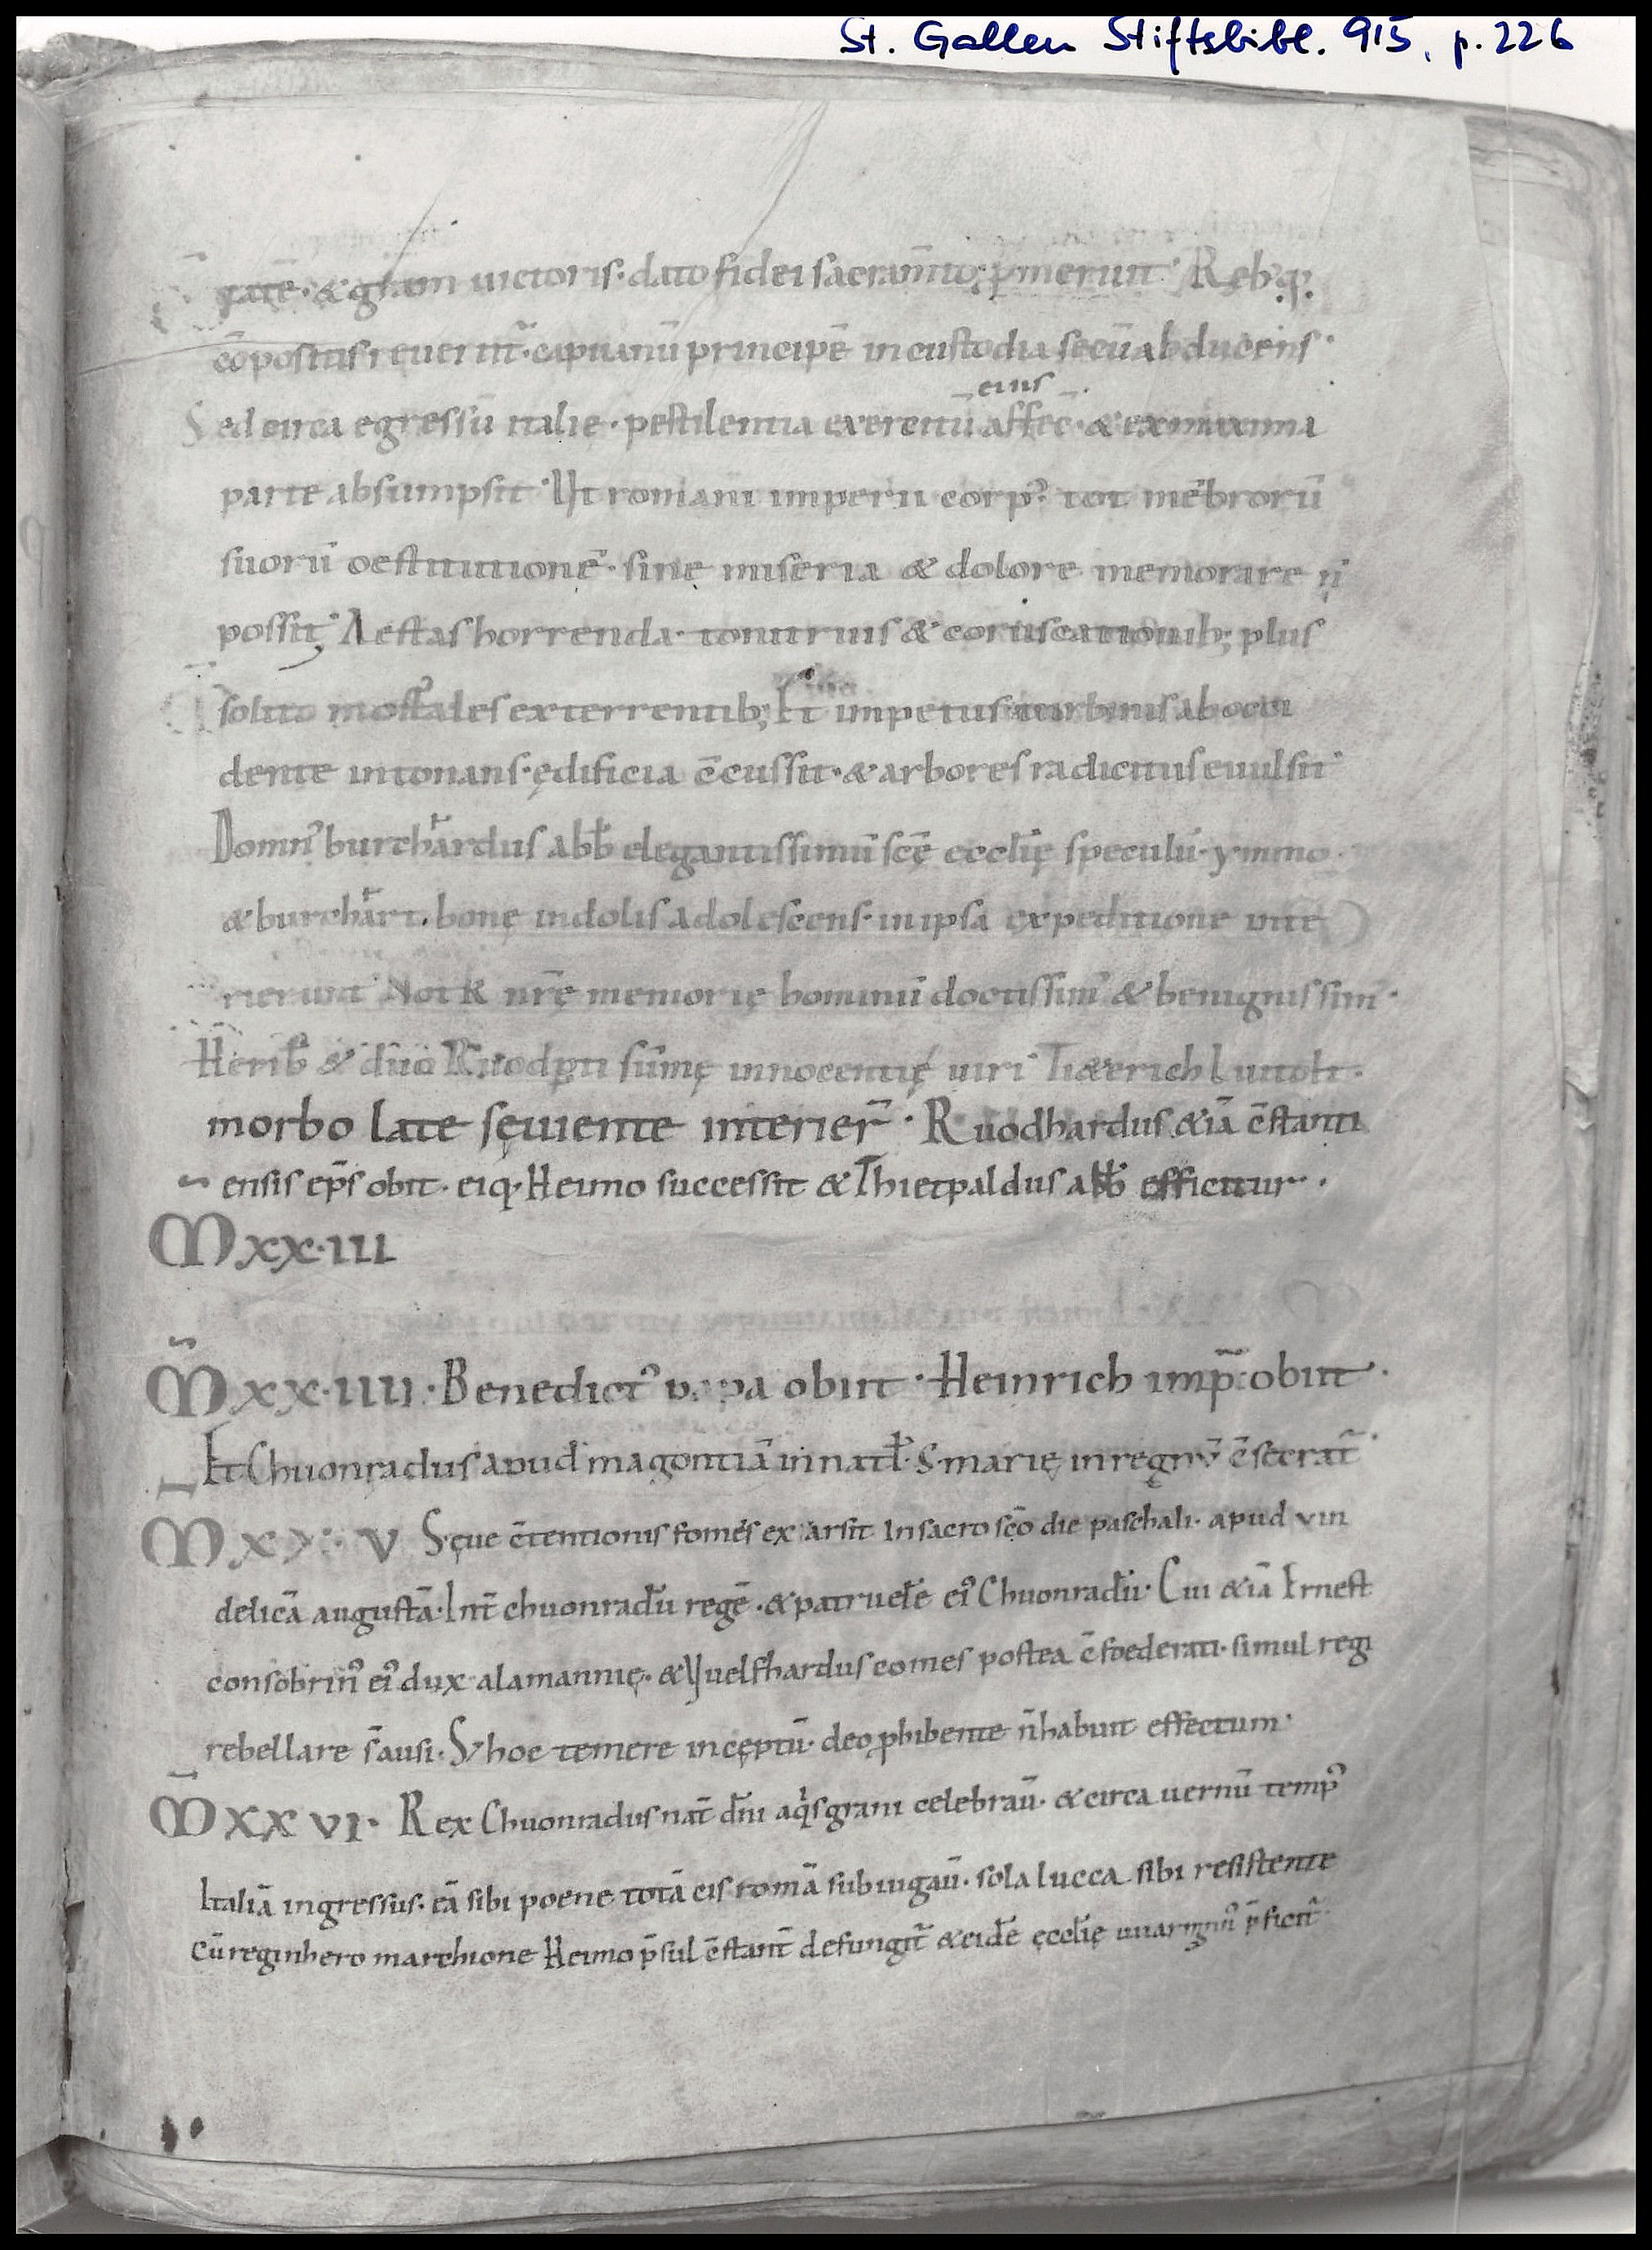 St. Gallen Stiftsbibl. 915, p. 226
tatē · & gr̄am uictoris · dato fidei sacram̄to; ꝓmerun̄t · Reb; q;
cōpositis reuertit̃ · capuanū principē in custodia secū abducens ·
eius
Sed circa egressū italię · pestilentia exercitū affec̄ · & ex maxima
parte absumpsit · Ut romani imperii corp᾽ tot mēbrorū
suorū destitutionē · sine miseria & dolore memorare n̄
possit · Aestas horrenda · tonitruis & coruscationib; plus
solito mortales exterrentib; Et impetus turbinis ab occi
dente intonans · ędificia c̄cussit · & arbores radicitus euulsit ·
Domn᾽ burchardus abb̄ elegantissimū scę̄ ęccl̄ię speculū · ymmo
& burchart · bonę indolis adolescens · in ipsa expeditione inte
rierunt · Notk̄ nr̄ę memorię hominū doctissim᾽ & benignissim᾽ ·
Herib̄ & duo Ruodp̄ti sūmę innocentię uiri · Ti&erich Luitolt ·
morbo late sęuiente interier̄ · Ruodhardus &iā c̄stanti
ensis ep̄s obit · eiq; Heimo successit & Thietpaldus abb̄ efficitur ·
Mxx·iii
M̃xx·iiii · Benedict᾽ papa obiit · Heinrich imp̄ obiit ·
Et Chuonradus apud magontiā in natl̄ · S · marię in regnū c̄secrat̃ ·
Mxx·v Sęue c̄tentionis fomes exarsit In sacro scō die paschali · apud vin
delicā augustā · Int̄ chuonradū regē · & patruelē ei᾽ Chuonradū · Cui &iā Ernest
consobrin᾽ ei᾽ dux alamannię · & Vuelfhardus comes postea c̄foederati · simul regi
rebellare s̄ ausi · S; hoc temere incęptū · deo ꝓhibente n̄ habuit effectum ·
M̄xxvi · Rex Chuonradus nat̄ dn̄i aq̇sgrani celebrau̅ · & circa uernū temp᾽
Italiā ingressus · eā sibi poene totā cis romā subiugau̅ · sola lucca sibi resistente
Cū reginhero marchione Heimo p̄sul c̄stant̄ defungit̃ & eidē ęccl̄ię uuarmn᾽ p̄ficit̃